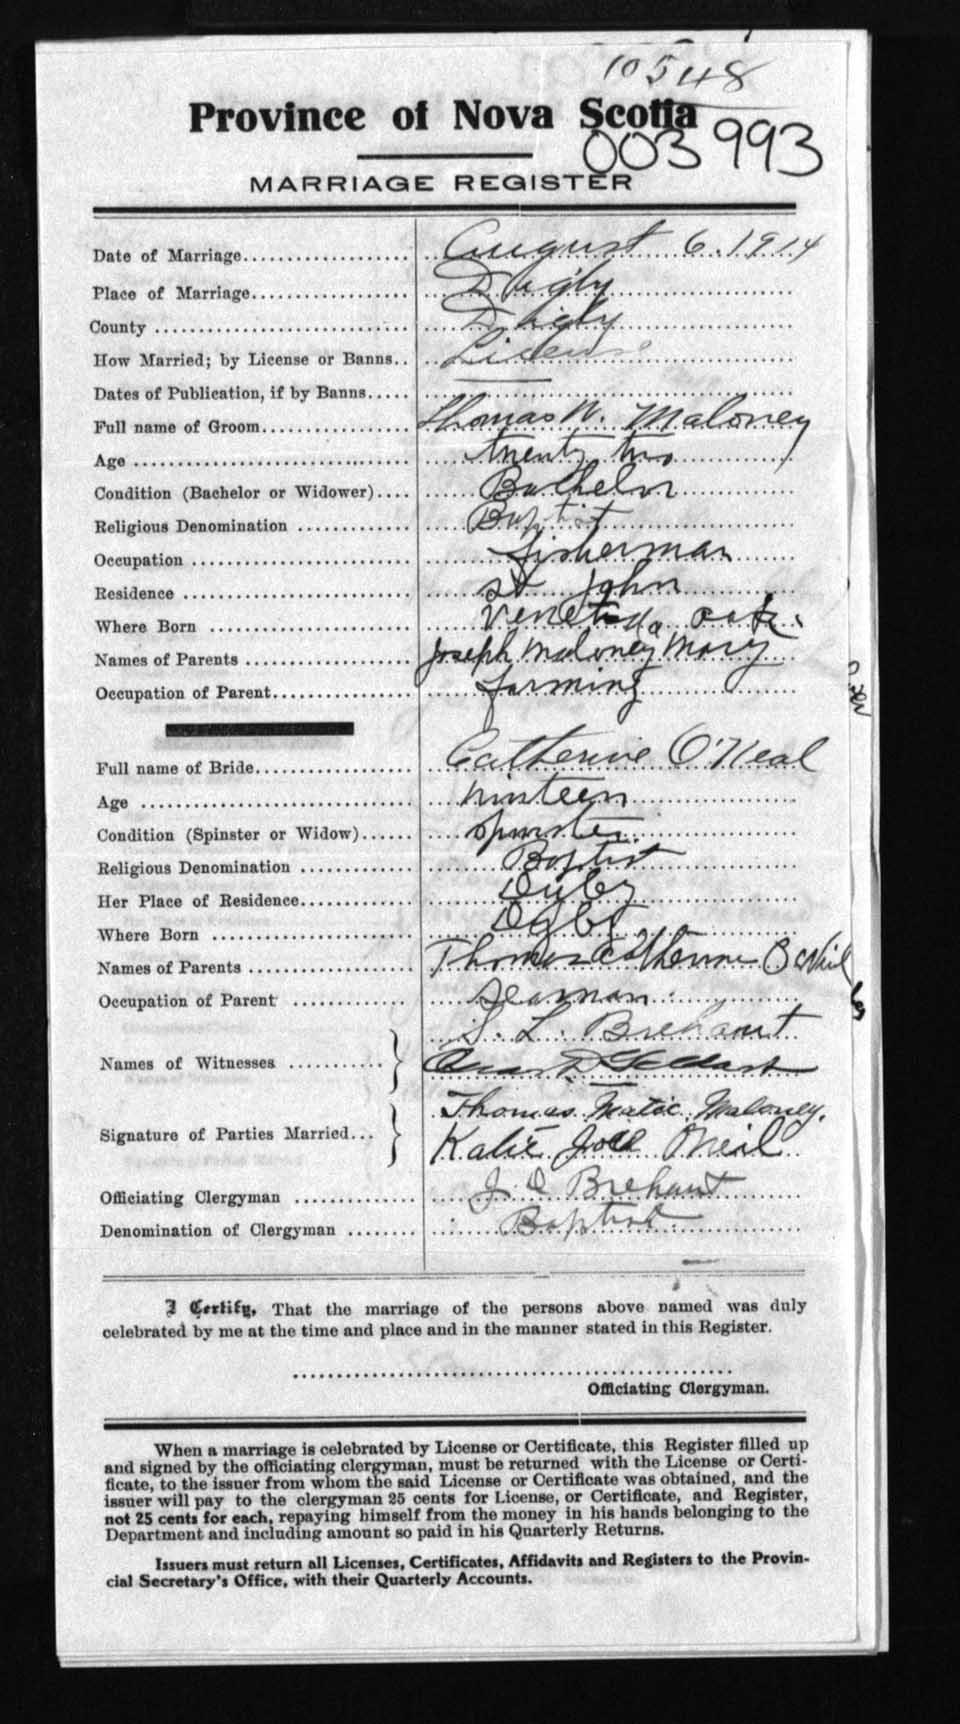 10548
Province of Nova Scotia
003993
MARRIAGE REGISTER
Date of Marriage................... August 6. 1914
Place of Marriage.................. Digby
County ............................. Digby
How Married; by License or Banns.. License
Dates of Publication, if by Banns.....
Full name of Groom................. Thomas W. Maloney
Age ............................... twenty two
Condition (Bachelor or Widower).... Bachelor
Religious Denomination ............. Baptist
Occupation ......................... fisherman
Residence .......................... St John
Where Born .........................
Names of Parents ................... Joseph Maloney Mary
Occupation of Parent................ farming
Full name of Bride.................. Catherine O'Neal
Age ................................ nineteen
Condition (Spinster or Widow)...... Spinster
Religious Denomination ............. Baptist
Her Place of Residence.............. Digby
Where Born ......................... Digby
Names of Parents ................... Thomas Catherine O'Neil
Occupation of Parent ............... seaman
Names of Witnesses ............ S. L. Brehaut
Signature of Parties Married... Thomas Maloney.
Katie O'Neil
Officiating Clergyman ............. J D Brehaut
Denomination of Clergyman ........ Baptist
I Certify, That the marriage of the persons above named was duly
celebrated by me at the time and place and in the manner stated in this Register.
Officiating Clergyman.
When a marriage is celebrated by License or Certificate, this Register filled up
and signed by the officiating clergyman, must be returned with the License or Certi-
ficate, to the issuer from whom the said License or Certificate was obtained, and the
issuer will pay to the clergyman 25 cents for License, or Certificate, and Register,
not 25 cents for each, repaying himself from the money in his hands belonging to the
Department and including amount so paid in his Quarterly Returns.
Issuers must return all Licenses, Certificates, Affidavits and Registers to the Provin-
cial Secretary's Office, with their Quarterly Accounts.